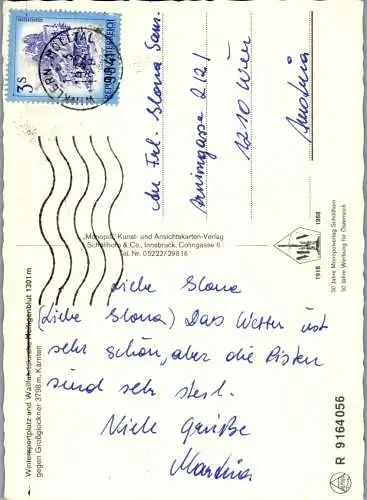 Liebe Ilona
(Liebe Ilona) Das Wetter ist
sehr schön, aber die Pisten
sind sehr steil.
Viele Grüße
Martina
An Frl. Ilona
2/2/
1210 Wien
Austria
3 S
REPUBLIK ÖSTERREICH
WINKLERN, MÖLLTAL
9841
"Monopol" Kunst- und Ansichtskarten-Verlag
Schöllhorn & Co., Innsbruck, Colingasse 6
Tel. Nr. 05222/29816
Wintersportplatz und Wallfahrtskirche Heiligenblut 1301 m
gegen Großglockner 3798 m, Kärnten
1918
1968
50 Jahre Monopolverlag Schöllhorn
50 Jahre Werbung für Österreich
R 9164056